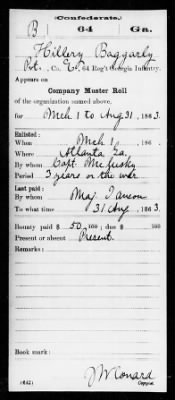 Confederate.
B 64 Ga.
Hillery Baggarly
Pvt., Co. , 64 Reg't Georgia Infantry.
Appears on
Company Muster Roll
of the organization named above,
for Mch 1 to Aug 31, 1863.
Enlisted:
When Mch 1, 186 .
Where Atlanta Ga.
By whom Capt.
Period 3 years or the war
Last paid:
By whom Maj.
To what time 31 Aug, 1863.
Bounty paid $ 50 100; due $ 100
Present or absent Present
Remarks:
Book mark:
(642) J W Conard
Copyist.